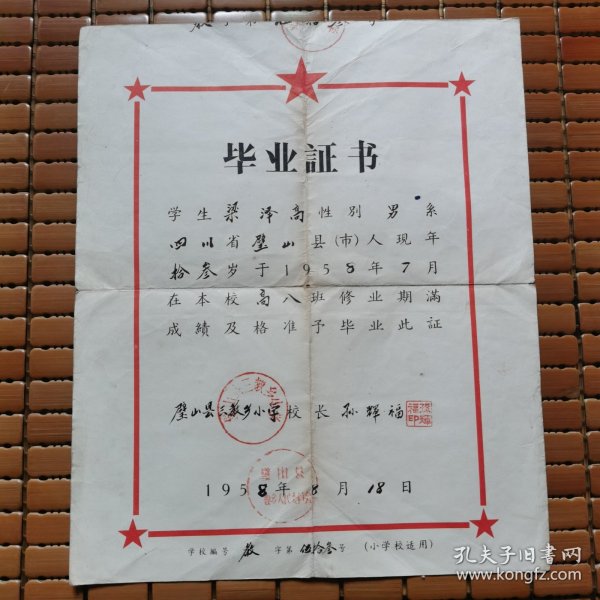 毕业証书
学生梁泽高性别男系
四川省璧山县(市)人现年
拾叁岁于1958年7月
在本校高八班修业期满
成绩及格准予毕业此証
璧山县三教乡小学校长孙辉福
1958年8月18日
学校编号 教 字第伍拾叁号 (小学校适用)
孔夫子旧书网
www.kongfz.com